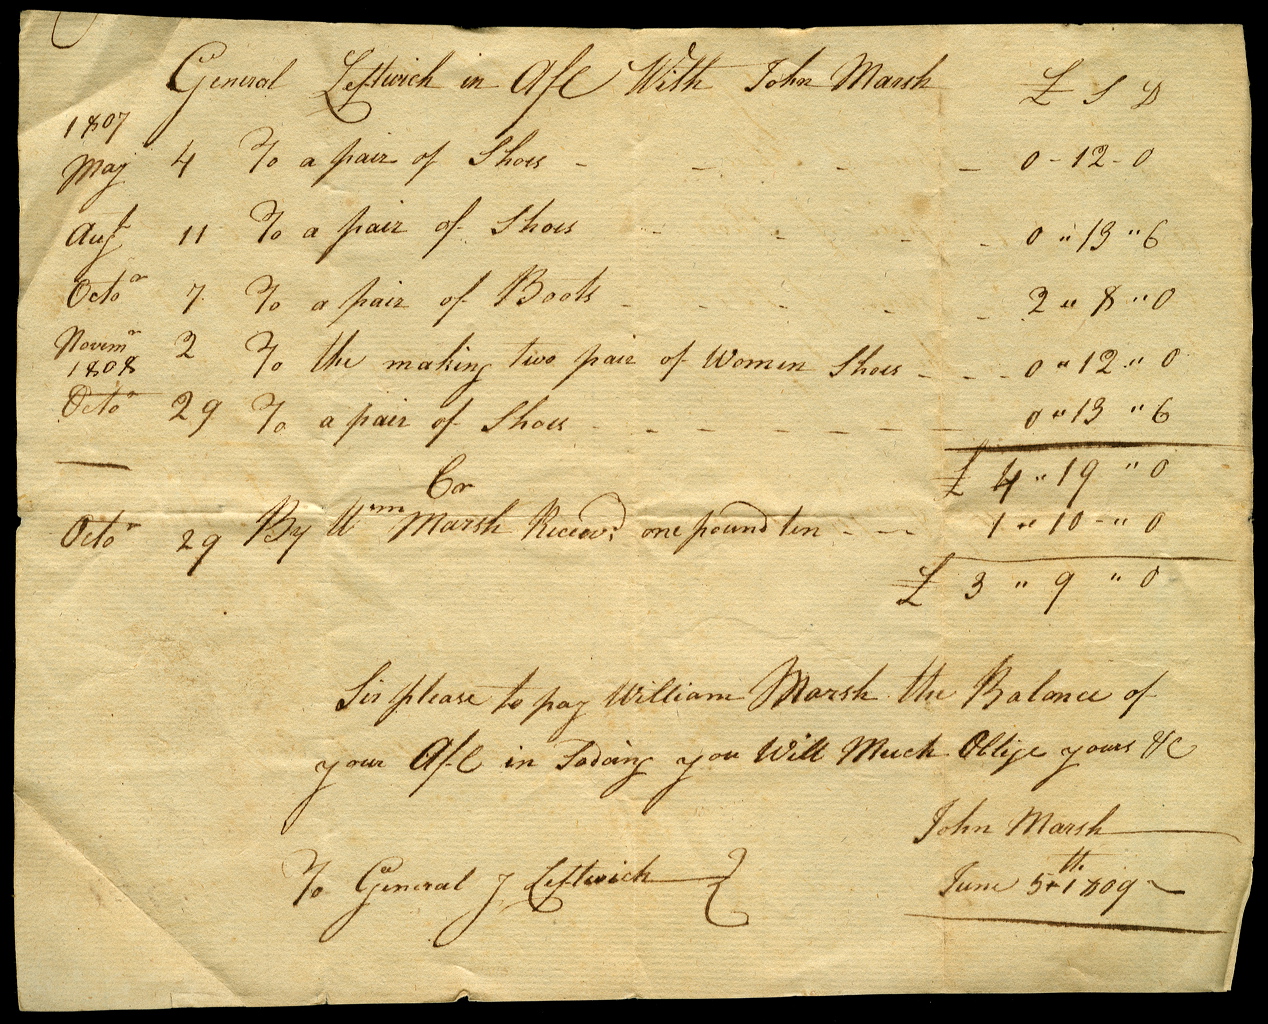 General Leftwich in A/c With John Marsh £ S D
1807
May 4 To a pair of Shoes - - - - 0 - 12 - 0
Augt 11 To a pair of Shoes - - - - 0 " 13 " 6
Octor 7 To a pair of Boots - - - - 2 " 8 " 0
Novemr 2 To the making two pair of Women Shoes - - - 0 " 12 " 0
1808
Octor 29 To a pair of Shoes - - - - - - - - 0 " 13 " 6
£ 4 " 19 " 0
Cr
Octor 29 By Wm Marsh Receivd one pound ten - - - 1 " 10 - " 0
£ 3 " 9 " 0
Sir please to pay William Marsh the Balance of
your A/c in Sodoing you Will Much Oblige yours &c
John Marsh
To General J Leftwich
June 5th 1809